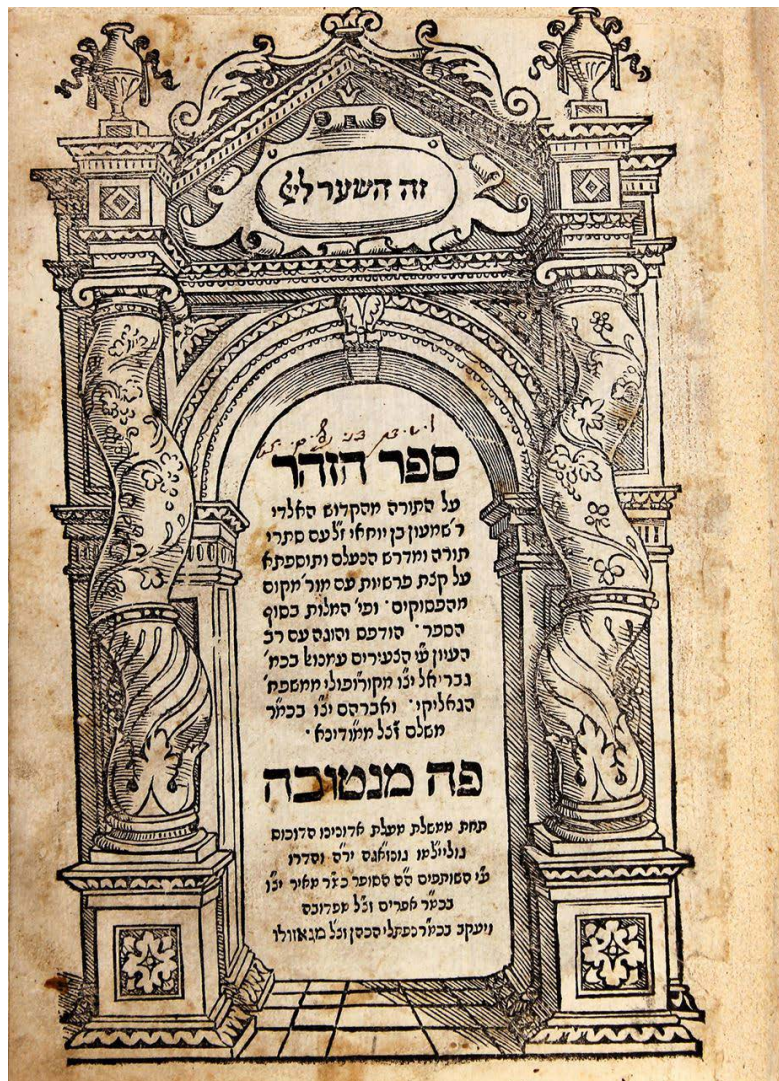 זה השער ליי
ספר הזהר
על התורה מהקדוש האלדי
ר׳ שמעון בן יוחאי ז״ל עם סתרי
תורה ומדרש הנעלם ותוספתא
על קצת פרשיות עם מור׳ מקום
מהפסוקים · ופי׳ המלות בסוף
הספר · הודפס והוגה עם רב
העיון ע״י הצעירים עמנוש בכמ׳
גבריאל יצ״ו מקורופולי ממשפח׳
הגאליקי · ואברהם יצ״ו בכמ״ר
משלם זצ״ל ממודינא ·
פה מנטובה
תחת ממשלת מעלת אדונינו הדוכוס
גולייֿלמו גונזאגה יר״ה וסדרו
ע״י השותפים ה״ה הסופר כמ״ר מאיר יצ״ו
בכמ״ר אפרים זצ״ל מפדובה
ויעקב בכמ״ר נפתלי הכהן זצ״ל מגאזולו